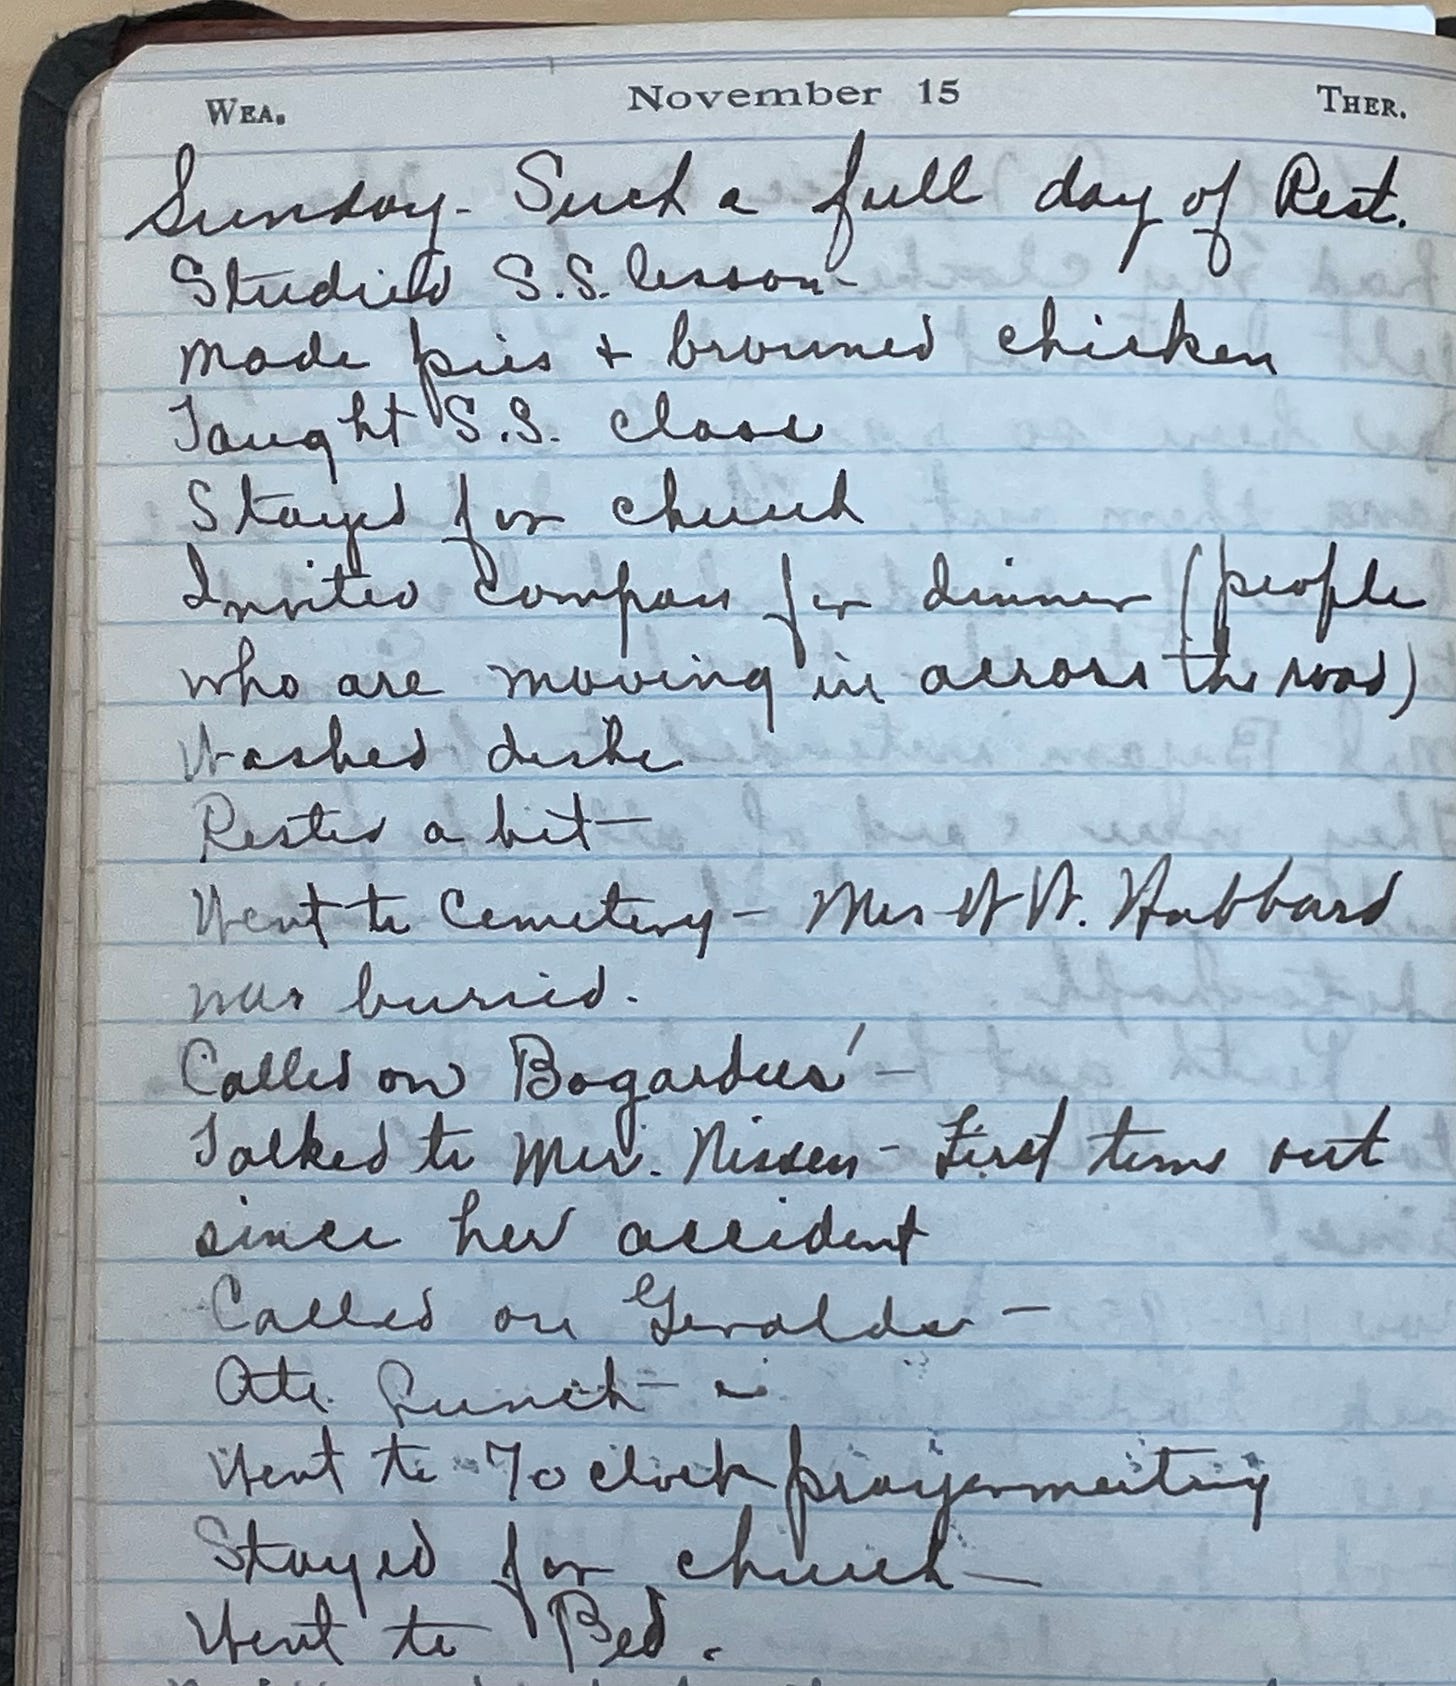 WEA. November 15 THER.
Sunday - Such a full day of Rest.
Studied S.S. lesson -
made pies + browned chicken
Taught S.S. class
Stayed for church
Invited company for dinner (people
who are moving in across the road)
Washed dishe
Rested a bit -
Went to Cemetery - Mrs W. Hubbard
was buried.
Called on Bogardus' -
Talked to Mrs. Nissen - First time out
since her accident
Called on Geralds -
Ate Lunch -
Went to 7 o clock prayermeeting
Stayed for church -
Went to Bed.